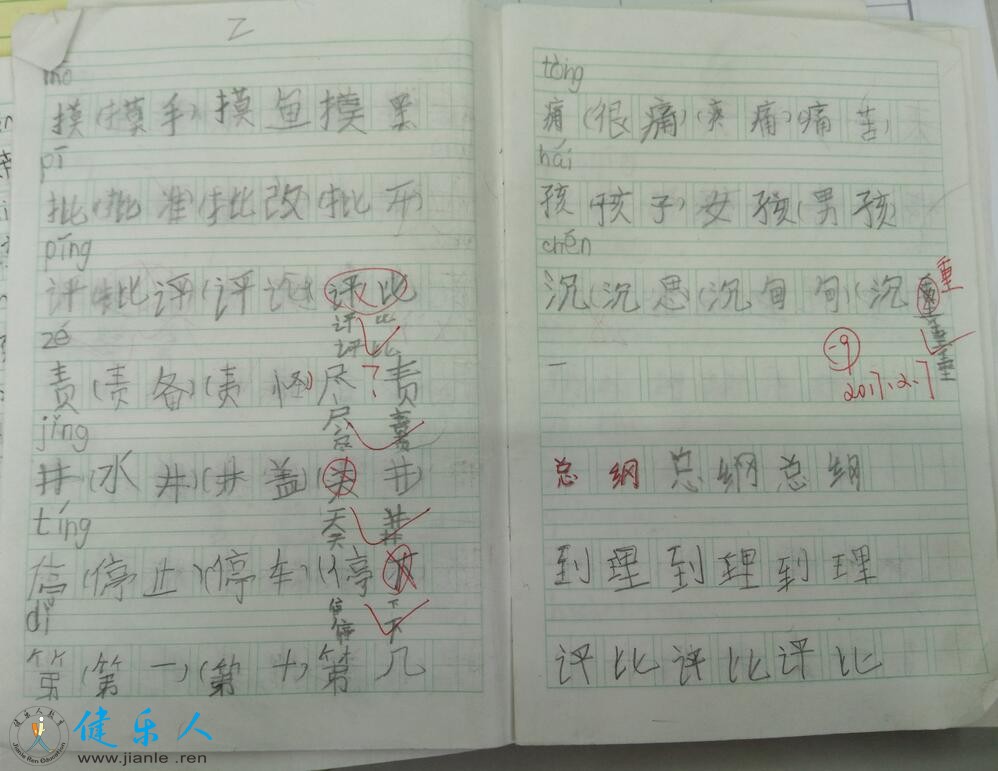 乙
mō
摸(摸手)摸鱼摸黑
pī
批(批准)(批改)(批开)
píng
评(批评)(评论)评比
评比
评比
zé
责(责备)(责怪)尽?责
尽责
jǐng
井(水井)(井盖)(天井)
天井
天井
tíng
停(停止)(停车)(停下
停下
停下
dì
第(第一)(第十)第几
tòng
痛(很痛)(疼痛)(痛苦)
hái
孩(孩子)女孩(男孩
chén
沉(沉思)(沉甸甸)(沉重
重
重
-9
2017.12.7
总纲总纲总纲
到理到理到理
评比评比评比
健乐人教育
Jianle Ren Education
健乐人
www.jianle.ren